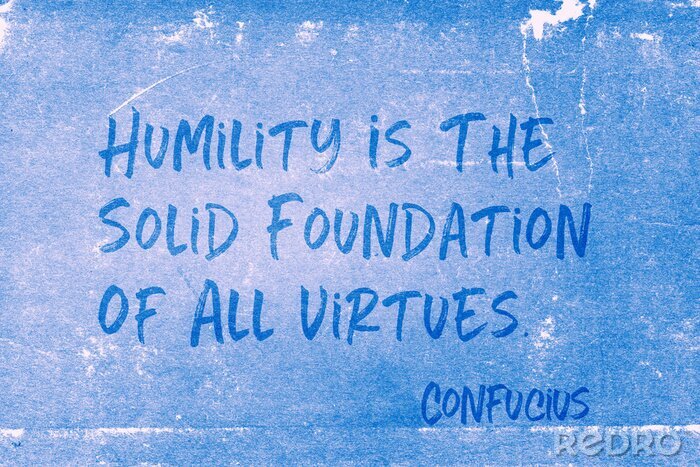 Humility is the
Solid Foundation
of All Virtues.
Confucius
REDRO